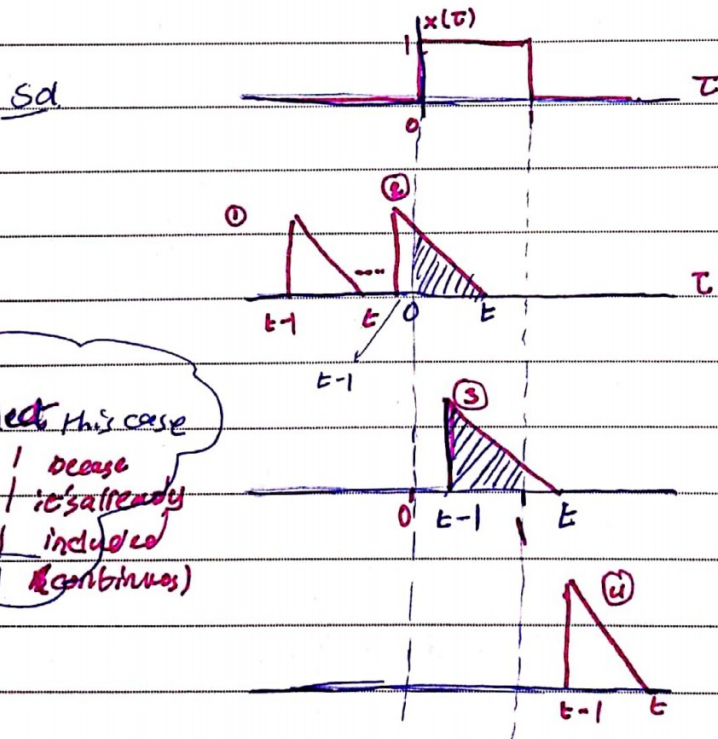 x(τ)
1
Sol
τ
0
①
②
....
τ
t-1
t
0
t
t-1
③
this case
because
it's already
included
(continues)
0
t-1
1
t
④
t-1
t